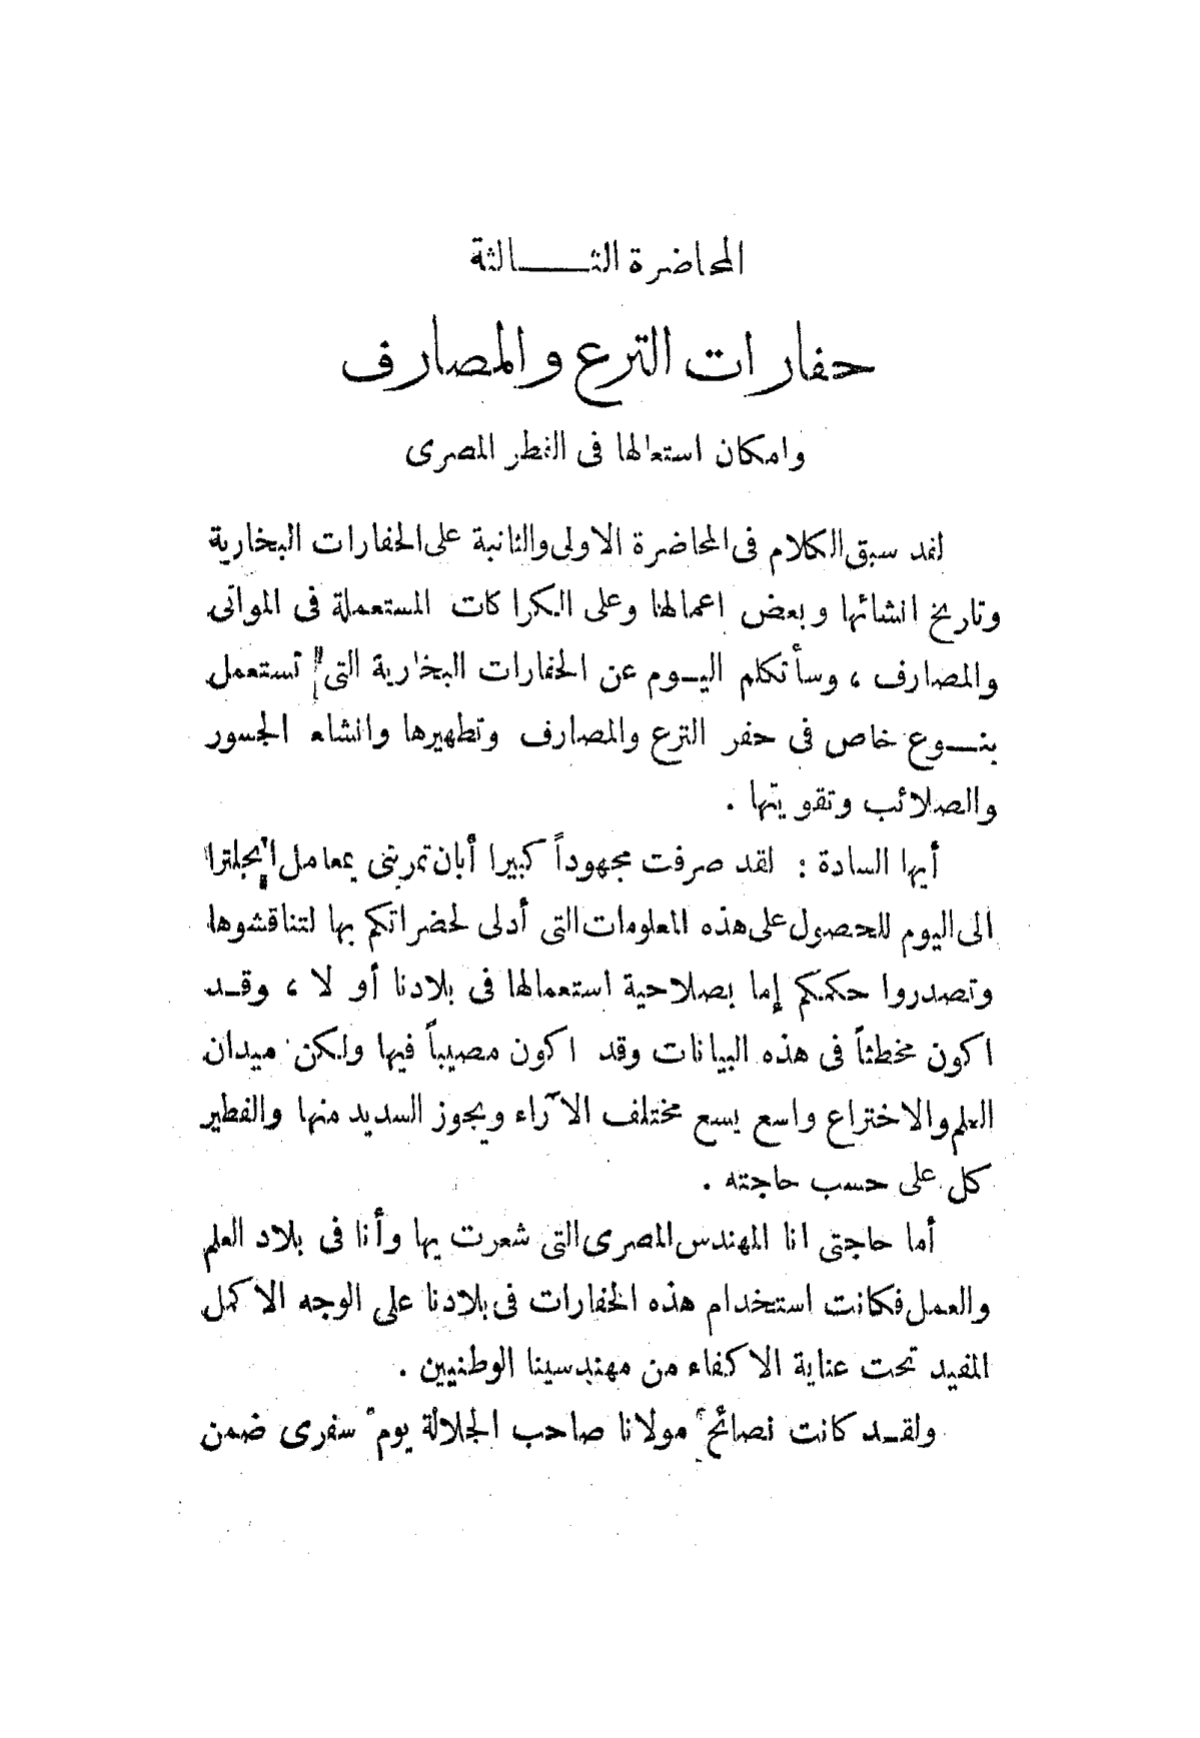 المحاضرة الثالثة
حفارات الترع والمصارف
وامكان استعمالها فى القطر المصرى
لقد سبق الكلام فى المحاضرة الاولى والثانية على الحفارات البخارية
وتاريخ انشائها وبعض اعمالها وعلى الكراكات المستعملة فى الموانى
والمصارف ، وسأتكلم اليوم عن الحفارات البخارية التى تستعمل
بنوع خاص فى حفر الترع والمصارف وتطهيرها وانشاء الجسور
والصلائب وتقويتها .
أيها السادة : لقد صرفت مجهوداً كبيرا أبان تمرينى بمعامل انجلترا
الى اليوم للحصول على هذه المعلومات التى أدلى لحضراتكم بها لتناقشوها
وتصدروا حكمكم إما بصلاحية استعمالها فى بلادنا أو لا ، وقد
اكون مخطئاً فى هذه البيانات وقد اكون مصيباً فيها ولكن ميدان
العلم والاختراع واسع يسع مختلف الآراء ويجوز السديد منها والفطير
كل على حسب حاجته .
أما حاجتى انا المهندس المصرى التى شعرت بها وأنا فى بلاد العلم
والعمل فكانت استخدام هذه الحفارات فى بلادنا على الوجه الاكمل
المفيد تحت عناية الاكفاء من مهندسينا الوطنيين .
ولقد كانت نصائح مولانا صاحب الجلالة يوم سفرى ضمن